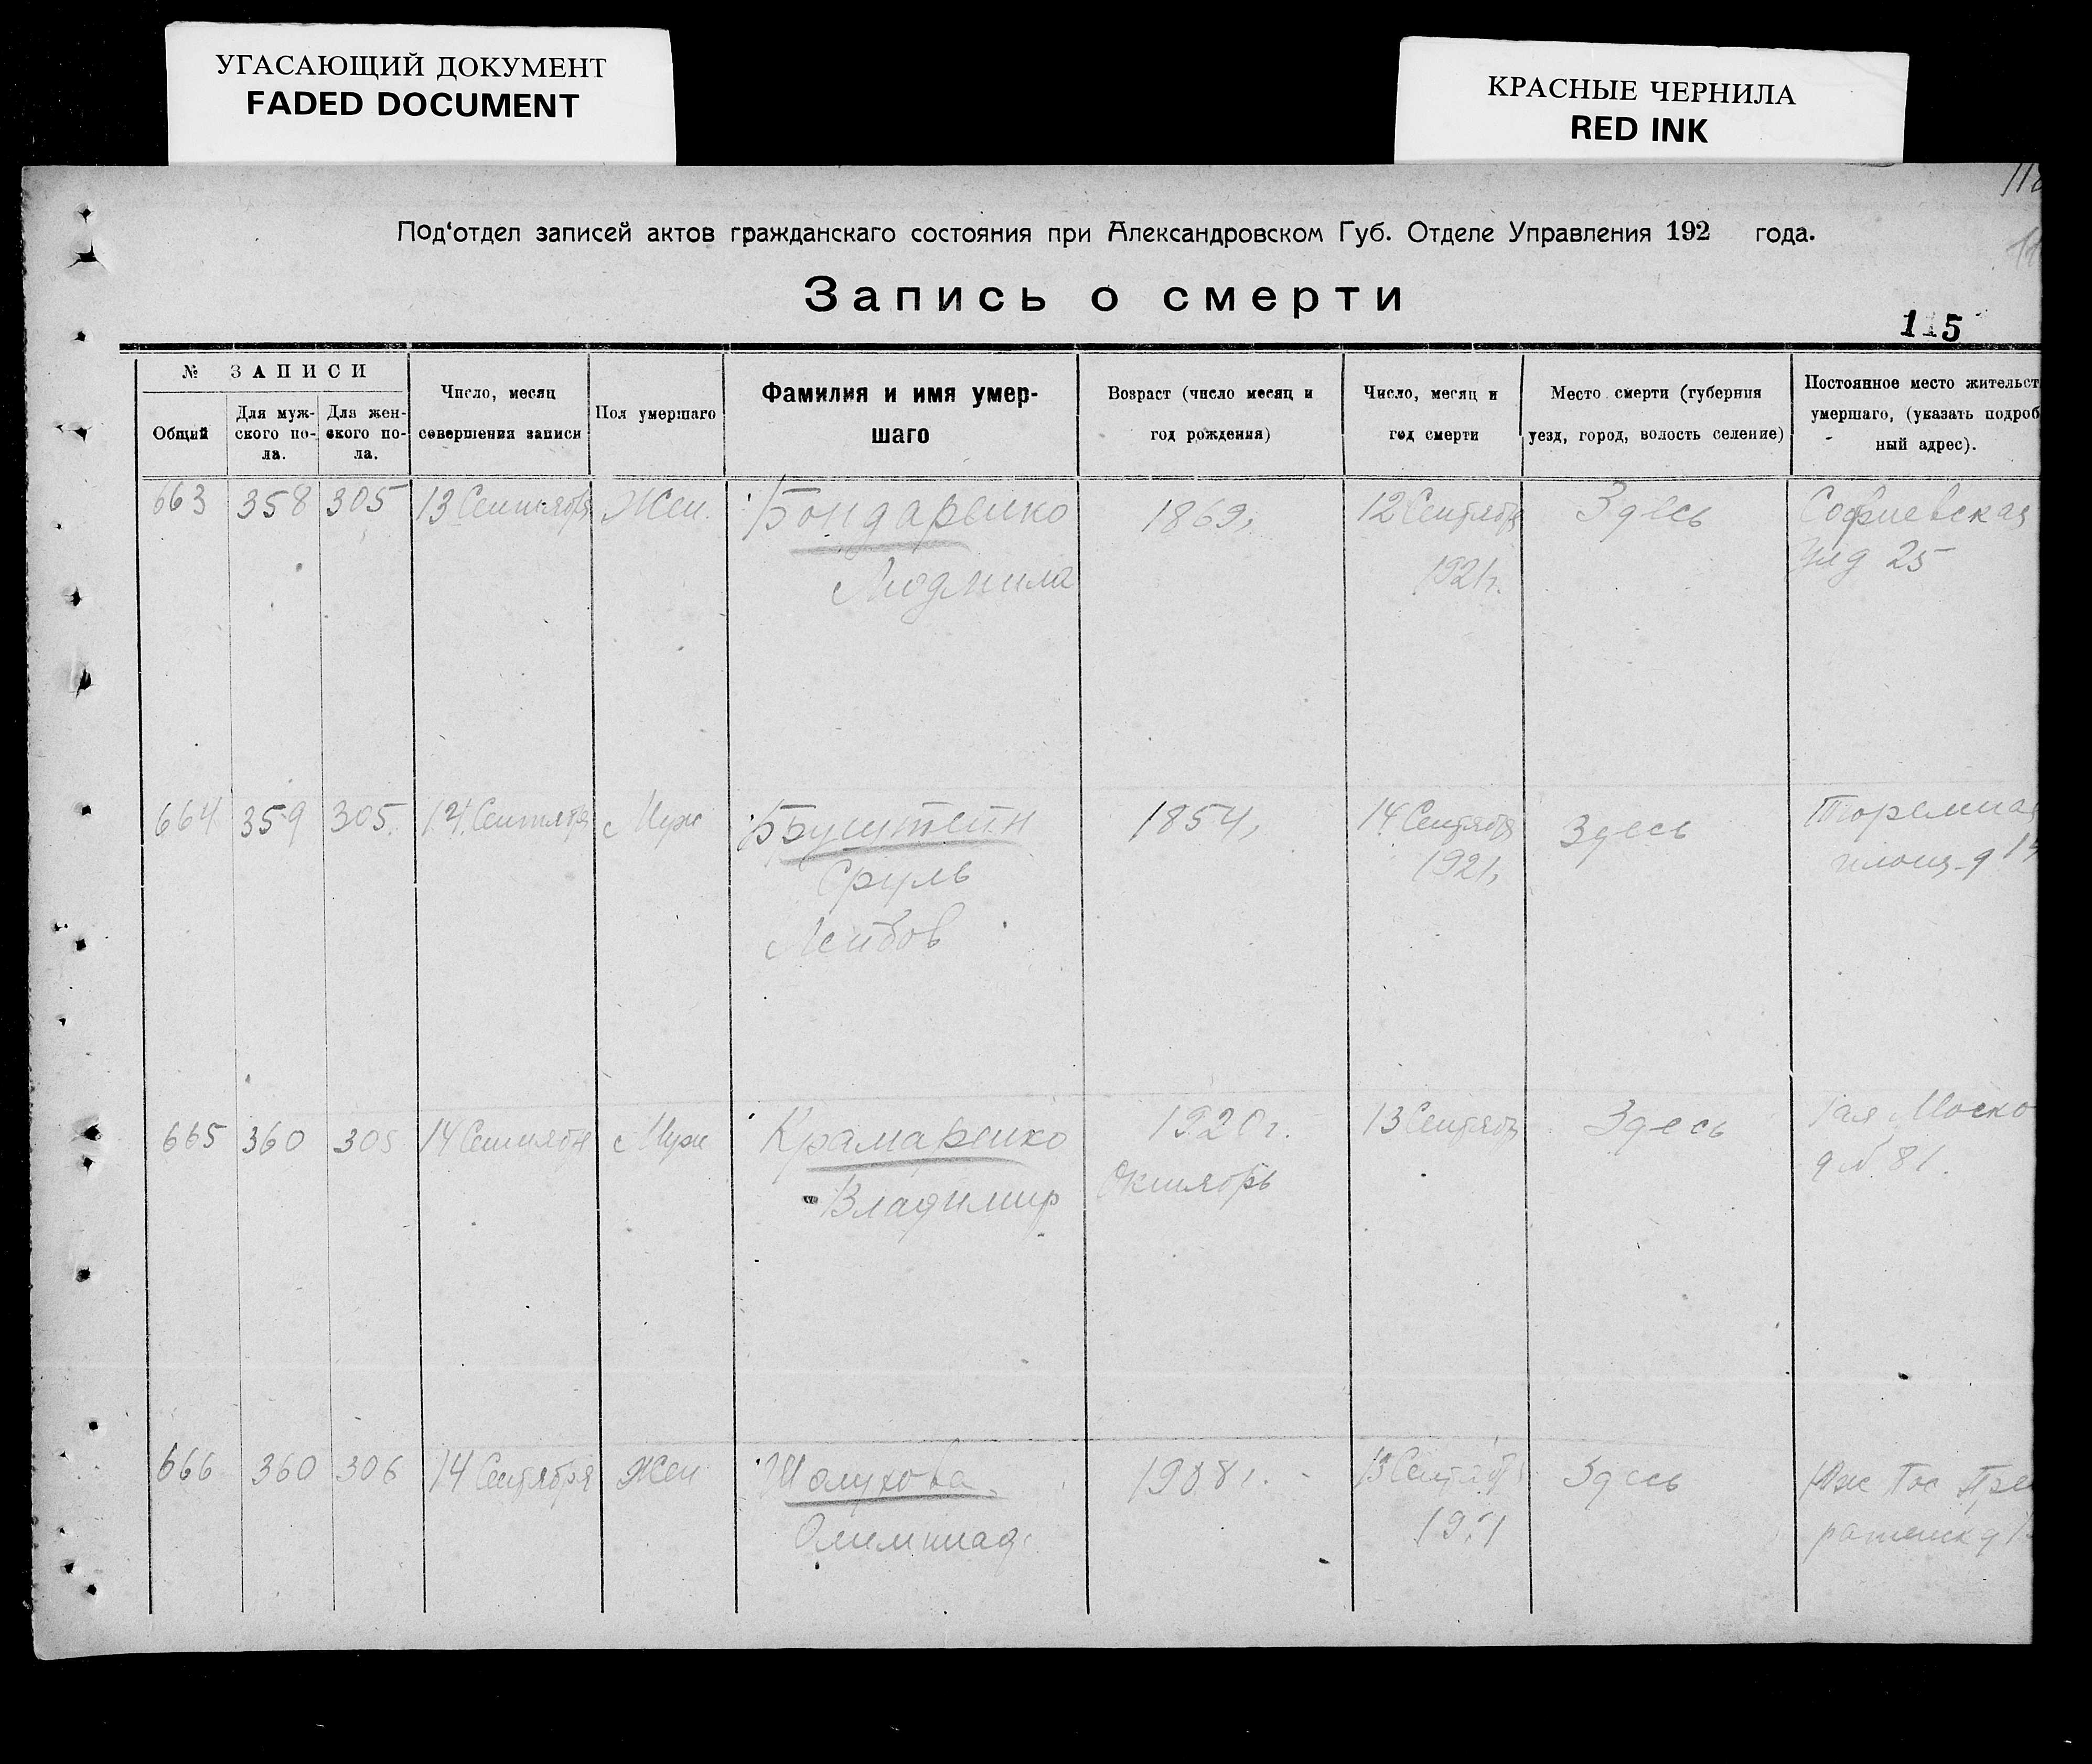 УГАСАЮЩИЙ ДОКУМЕНТ
FADED DOCUMENT
КРАСНЫЕ ЧЕРНИЛА
RED INK
Под‘отдел записей актов гражданскаго состояния при Александровском Губ. Отделе Управления 192 года.
Запись о смерти
115
№ ЗАПИСИ
Общий
Для муж-
ского по-
ла.
Для жен-
ского по-
ла.
Число, месяц
совершения записи
Пол умершаго
Фамилия и имя умер-
шаго
Возраст (число месяц и
год рождения)
Число, месяц и
год смерти
Место смерти (губерния
уезд, город, волость селение)
Постоянное место жительст
умершаго, (указать подроб
ный адрес).
663 358 305 13 Сентября Жен. Бондаренко 1869, 12 Сентября Здесь Софиевская
Людмила 1921г. 25
664 359 305. 14 Сентября Муж Бруштейн 1854, 14 Сентября Здесь
Сруль 1921, площ д
Лейбов
665 360 305 14 Сентября Муж Крамаренко 1920г. 13 Сентябр Здесь 1ая Моско
Владимир Октябрь д № 81.
666 360 306 14 Сентября Жен Шолухова 1908г. 13 Сентября Здесь
Олимпиад